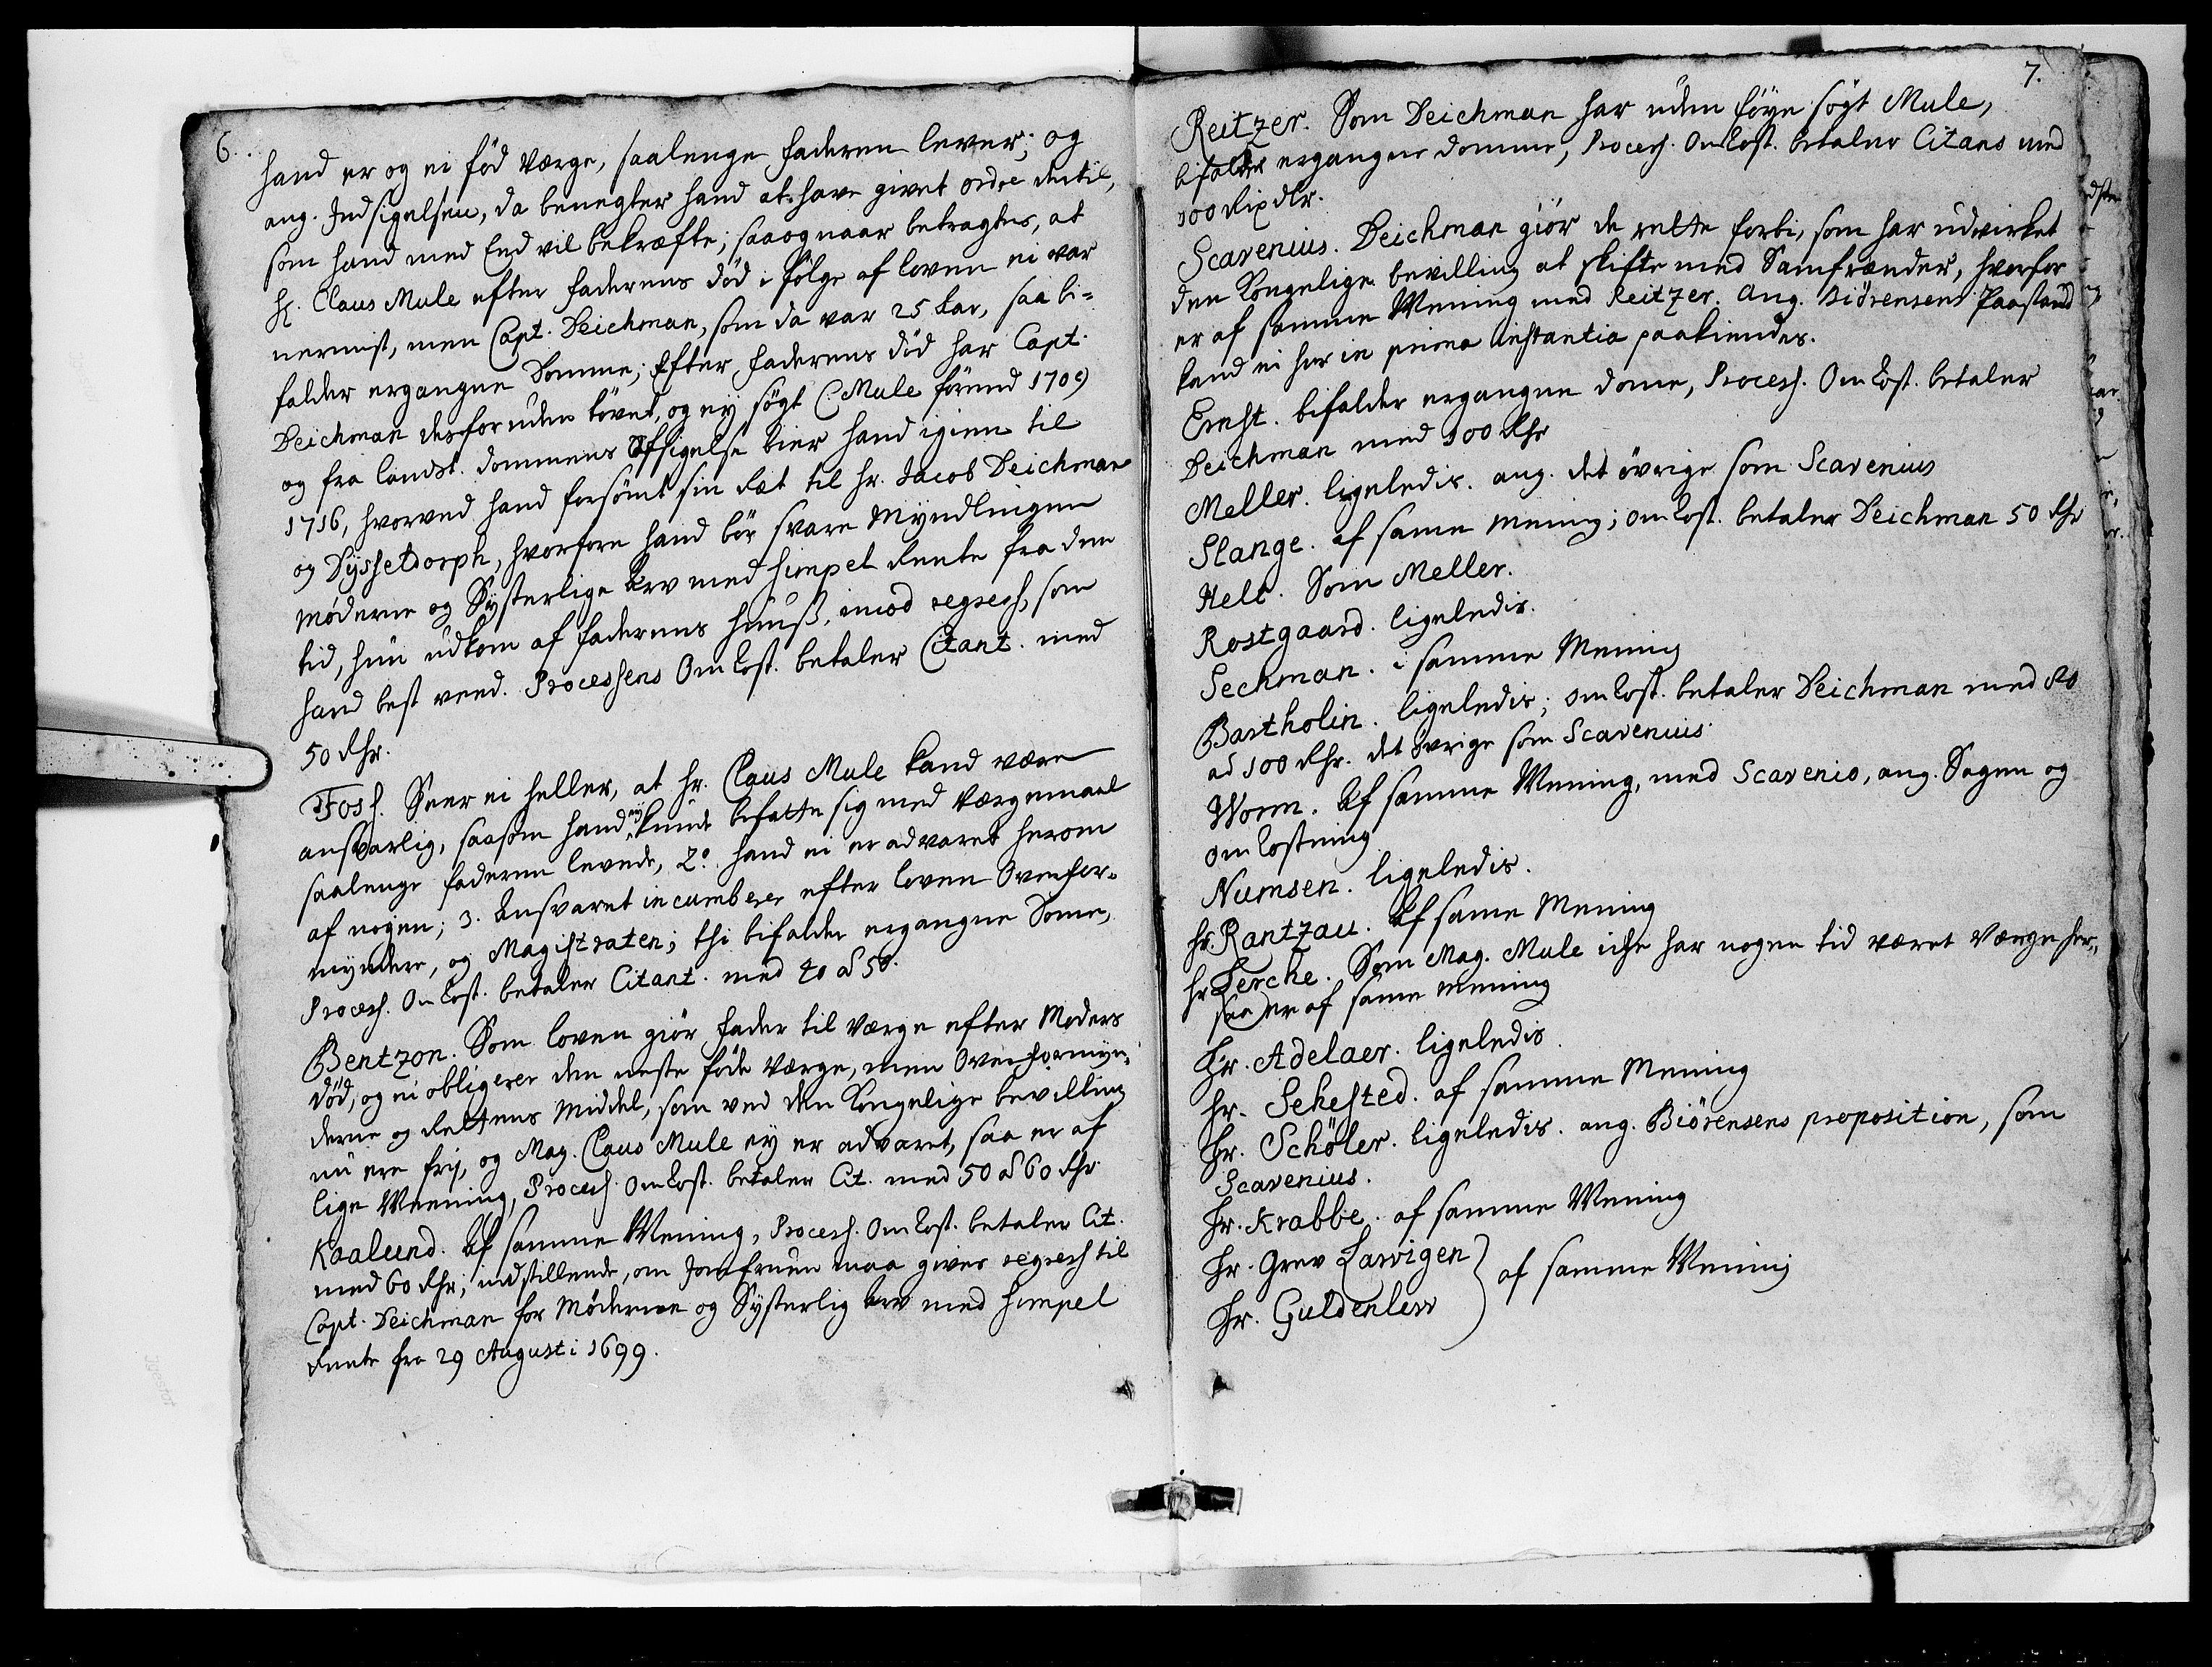 6.
hand er og ei fød Værge, saalenge faderen lever; og
ang. Indsigelsen, da benegter hand at have givet ordre dertil,
som hand med Eed vil bekræfte; saa og naar betragtes, at
H. Claus Mule efter faderens død i følge af loven ei var
nermist, men Capt. Deichman, som da var 25 Aar, saa bi-
falder ergangne Domme; Efter faderens død har Capt.
Deichman desforuden tövet, og ey søgt C Mule förend 1709
og fra landst. dommens Afsigelse bier hand igien til
1716, hvorved hand forsömt sin Ret til hr. Jacob Deichman
og Dyssetdorph, hvorfore hand bör svare Myndlingen
Møderne og Systerlige Arv med simpel Rente fra den
tid, hun udkom af faderens huuß, imod regress, som
hand best veed. Processens Omkost. betaler Citant. med
50 Rhr.
Foss. Seer ei heller, at hr. Claus Mule kand være
ansvarlig, saasom hand ey kunde befatte sig med Værgemaal
saalenge faderen levede, 2o. hand ei er advaret herom
af nogen; 3. Ansvaret incumberer efter loven Overfor-
myndere, og Magistraten; thi bifalder ergangne Dome,
Process. Omkost. betaler Citant. med 40 a 50.
Bentzon. Som loven giör fader til Værge efter Moders
död, og ei obligerer den neste föde Værge, men Overformyn-
derne og Rettens Middel, som ved den Kongelige bevilling
nu ere frie, og Mag. Claus Mule ey er advaret, saa er af
lige Meening, Process. Omkost. betaler Cit. med 50 a 60 Rhr
Kaalund. Af samme Mening, Process. Omkost. betaler Cit.
med 60 Rhr; indstillende, om Jomfruen maa gives regress til
Capt. Deichman for Möderne og Systerlig Arv med simpel
Rente fra 29 Augusti 1699.
7.
Reitzer. Som Deichman har uden föye søgt Mule,
bifalder ergangne domme, Process. Omkost. betaler Citans med
100 Rixdlr.
Scavenius. Deichman giör de rette forbi, som har udvirket
den Kongelige bevilling at skifte med Samfrænder, hvorfor
er af samme Mening med Reitzer. Ang. Biörensens Paastand
kand ei her in prima instantia paakiendes.
Ernst. bifalder ergangne dome, Process. Omkost. betaler
Deichman med 100 Rhr
Meller. ligeledis. ang. det övrige som Scavenius
Slange. af same mening; omkost. betaler Deichman 50 Rhr
Helt. Som Meller.
Rostgaard. ligeledis.
Sechman. i samme Mening
Bartholin. ligeledis; omkost. betaler Deichman med 80
ad 100 Rhr. det övrige som Scavenius
Worm. Af samme Mening, med Scavenio, ang. Sagen og
omkostning
Numsen. ligeledis.
hr. Rantzau. Af same Mening
hr Lerche. Som Mag. Mule icke har nogen tid været Værge her,
saa er af same mening
Hr. Adelaer. ligeledis
hr. Sehested. af samme Mening
Hr. Schöler. ligeledis. ang. Biörensens proposition, som
Scavenius.
Hr. Krabbe. af samme Mening
Hr. Grev Larvigen
Hr. Guldenlew
af samme Mening